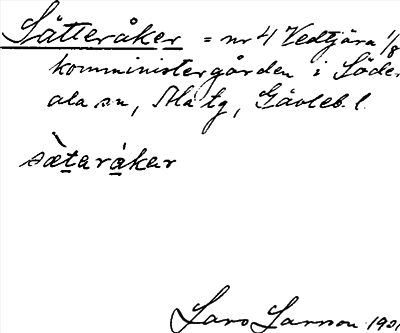 Sätteråker = nr 4 Vedtjära 1/8
komministergården i Söder
ala sn, Ala tg, Gävleb. l.
sæ̀taråkar
Lars Larsson 190